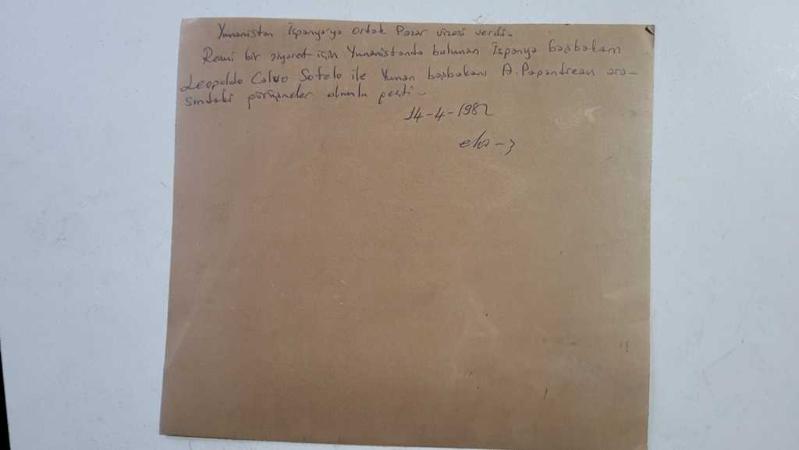 Yunanistan İspanyaya Ortak Pazar vizesi verdi.
Resmi bir ziyaret için Yunanistanda bulunan İspanya başbakanı
Leopoldo Calvo Sotelo ile Yunan başbakanı A. Papandreau ara-
sındaki görüşmeler olumlu geçti.
14-4-1982